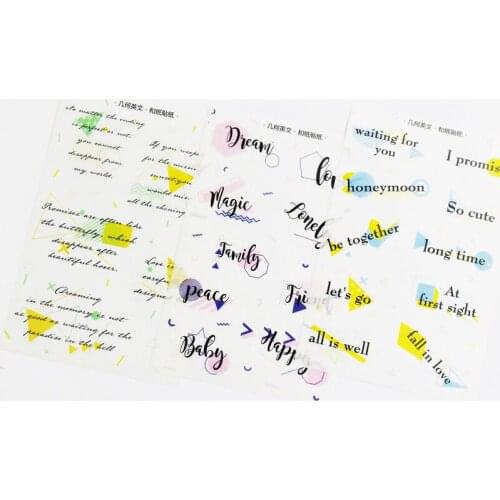 · 几何英文 · 和纸贴纸 ·
No matter the ending
is perfect or not,
you cannot
disappear from
my world.
If you weeps
for the
sunset
would miss
all the shining
Promises are often like
the butterfly, which
disappear after
beautiful hover.
Love is
designe
Dreaming
in the memory is not
as good as waiting for the
paradise in the hell
· 几何英文 · 和纸贴纸 ·
Dream
Magic
Family
peace
Baby
lov
Lonel
Fri
Happ
· 几何英文 · 和纸贴纸 ·
waiting for
you
honeymoon
be together
let's go
all is well
I promis
So cute
long time
At
first sight
fall in love